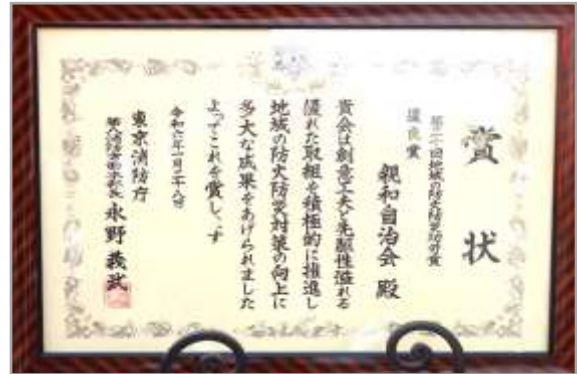 賞状
第二十回地域の防火防災功労賞
優良賞
親和自治会 殿
貴会は創意工夫と先駆性溢れる
優れた取組を積極的に推進し
地域の防火防災対策の向上に
多大な成果をあげられました
よってこれを賞します
令和六年一月二十八日
東京消防庁
永野義武